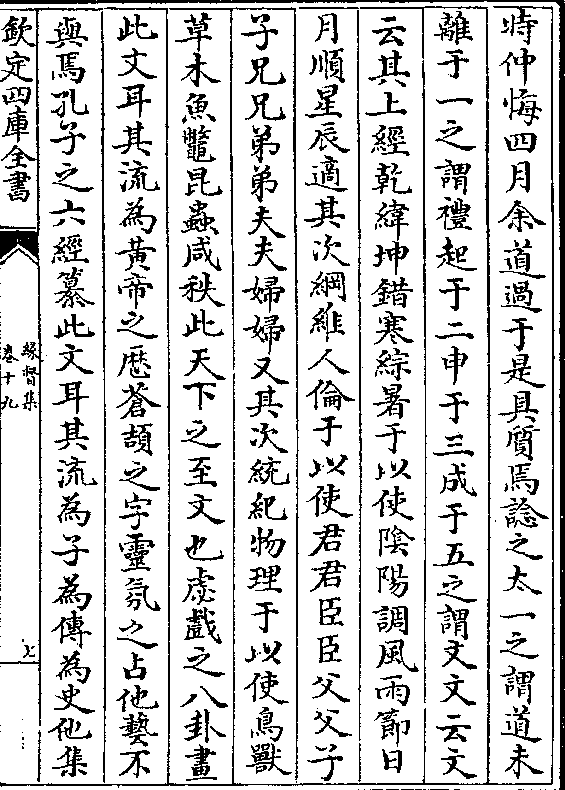 時仲悔四月余道過于是具質焉諗之太一之謂道未
離于一之謂禮起于二申于三成于五之謂文文云文
云其上經乾緯坤錯寒綜暑于以使陰陽調風雨節日
月順星辰適其次綱維人倫于以使君君臣臣父父子
子兄兄弟弟夫夫婦婦又其次統紀物理于以使鳥獸
草木魚鼈昆蟲咸秩此天下之至文也虙戲之八卦畫
此文耳其流為黃帝之厯蒼頡之字靈氛之占他藝不
與焉孔子之六經纂此文耳其流為子為傳為史他集
欽定四庫全書
緣督集
卷十九
七